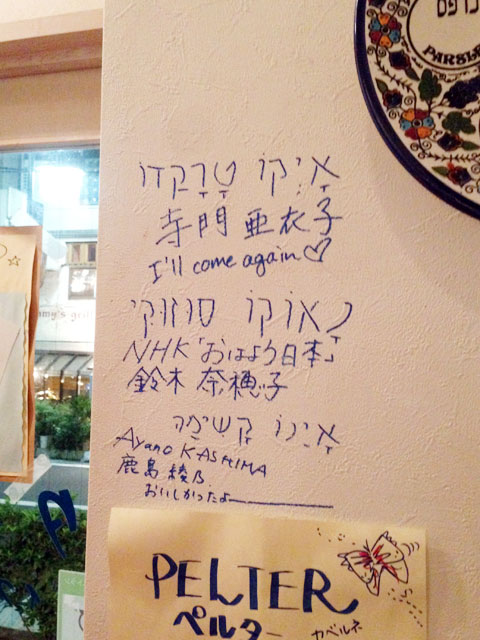 כרפס
PARSLE
אָיִקוֹ טָרָקָדוֹ
寺門 亜衣子
I'll come again♡
נָאוֹקוֹ סוּזוּקִי
NHK「おはよう日本」
鈴木 奈穂子
אָיַנוֹ קָשִׁימָה
Ayano KASHIMA
鹿島 綾乃
おいしかったよー
PELTER
ペルター
カベルネ